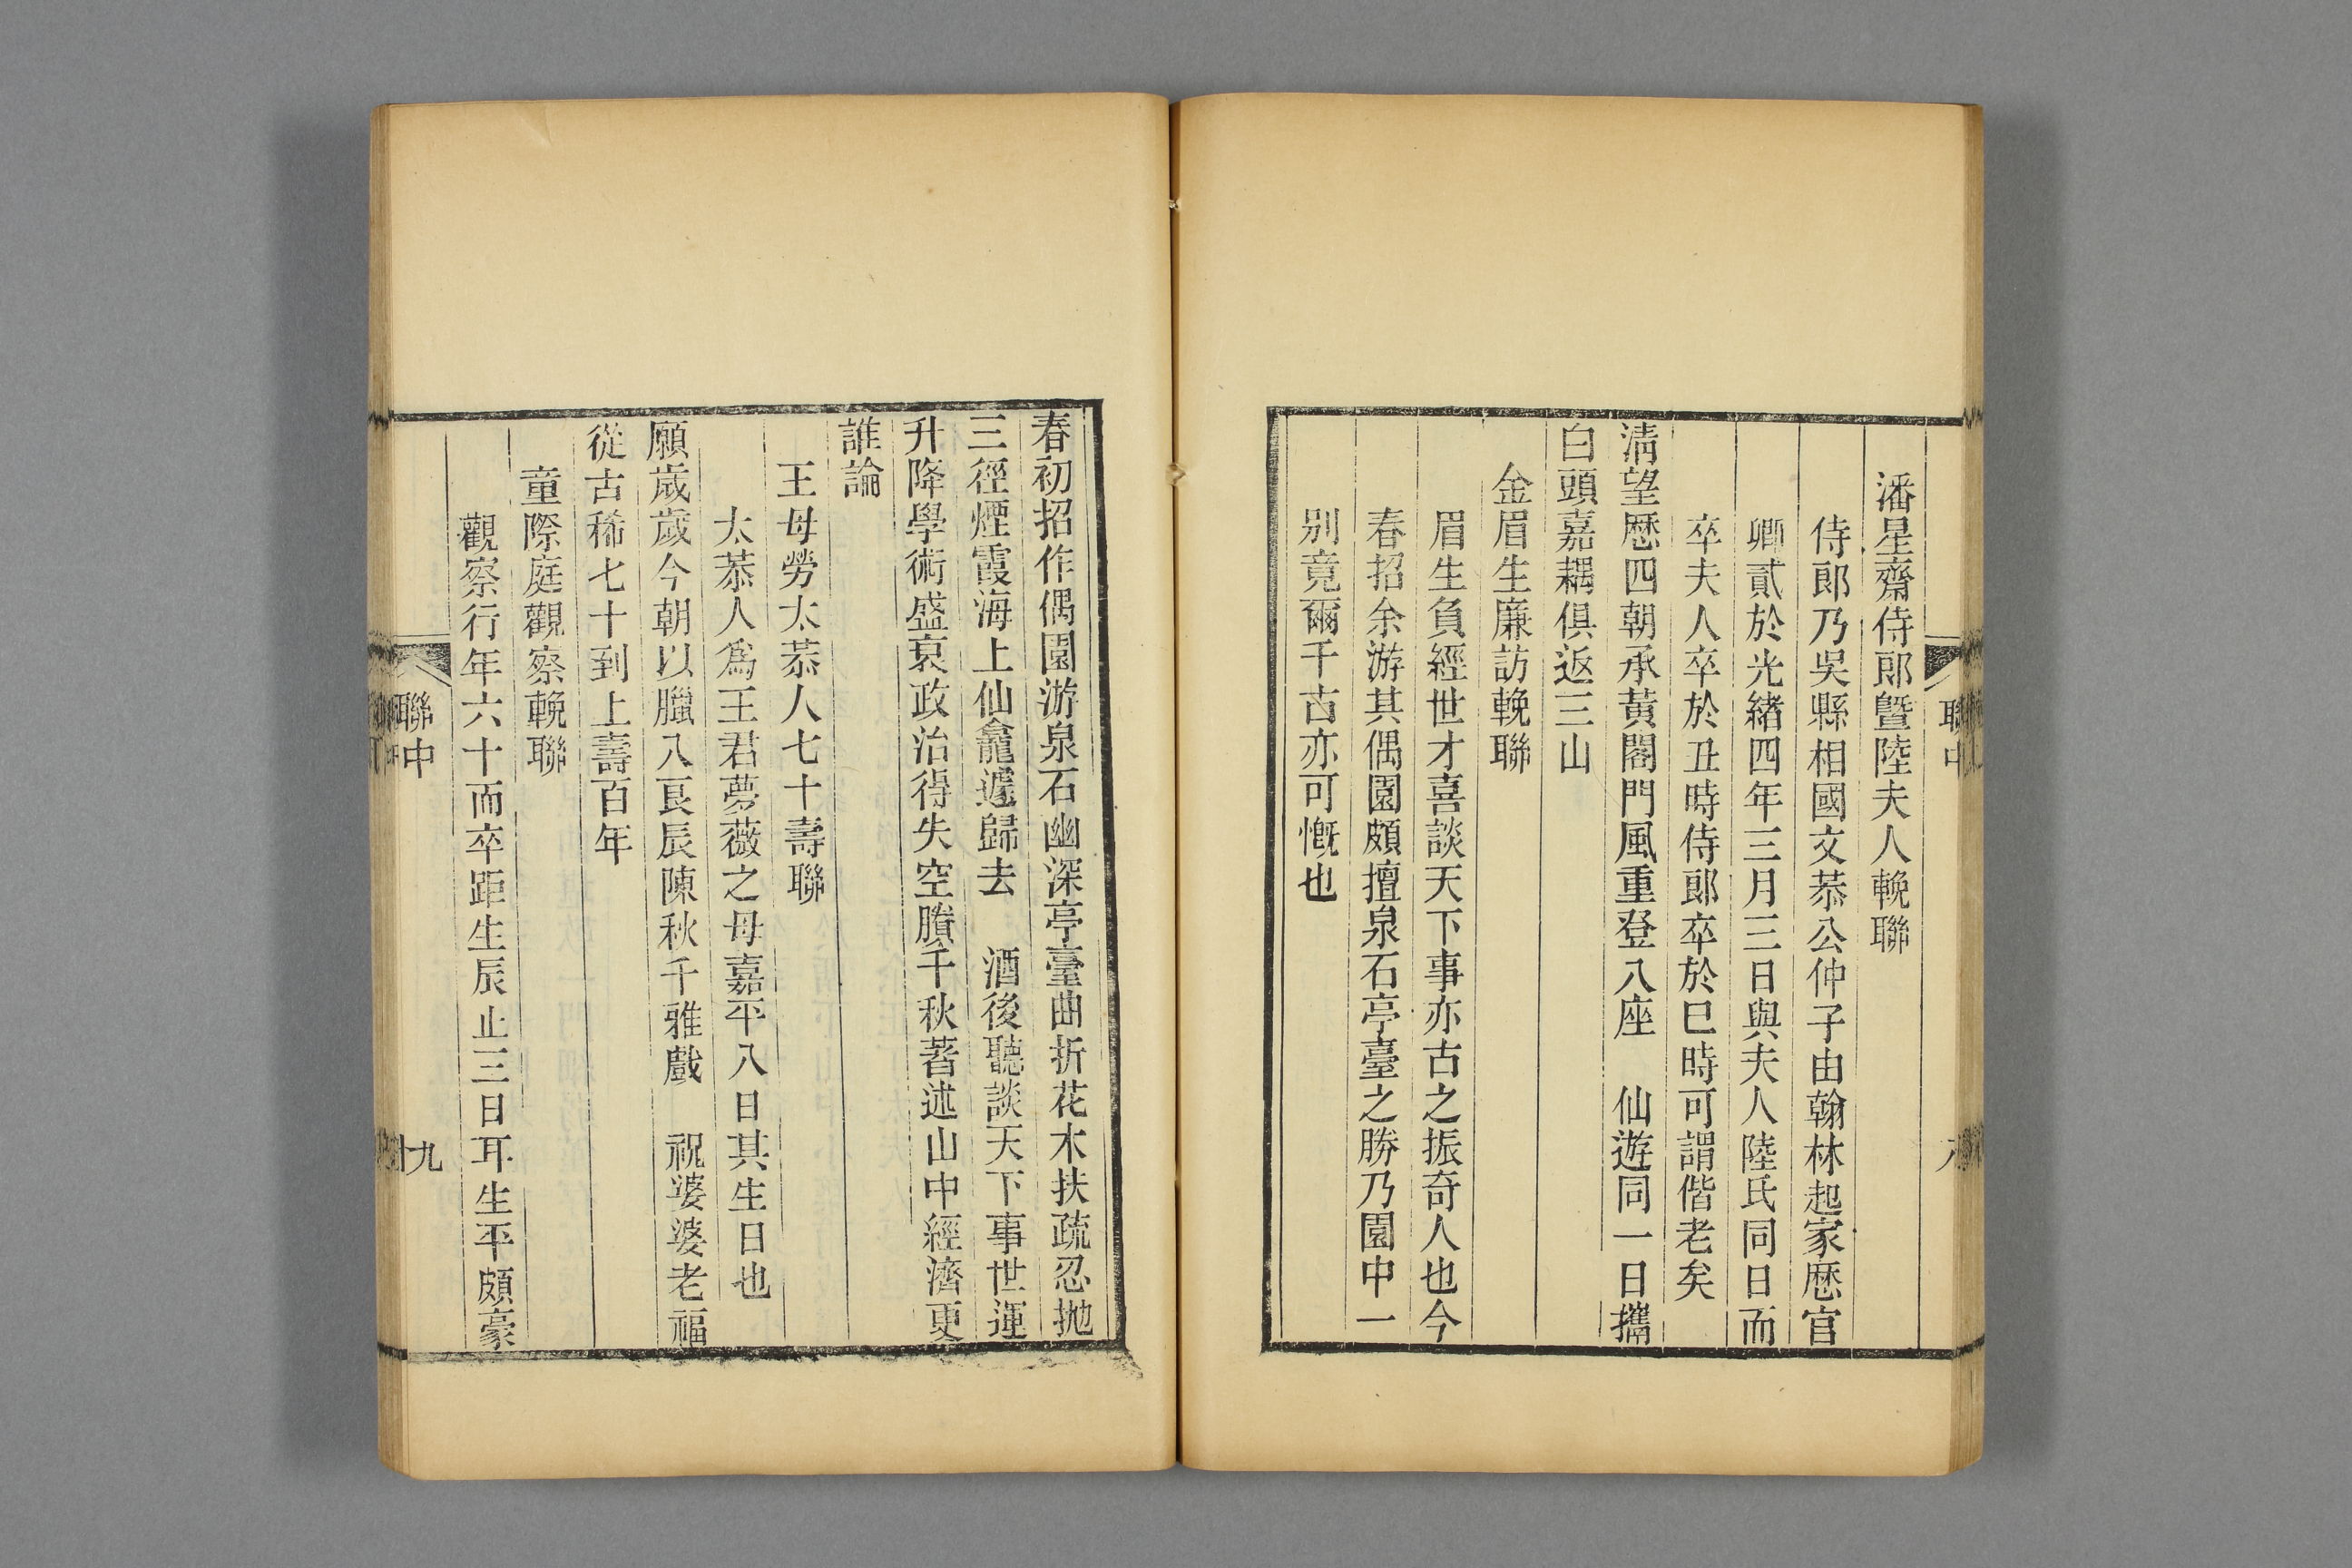 潘星齋侍郎曁陸夫人輓聯
侍郎乃吳縣相國文恭公仲子由翰林起家厯官
卿貳於光緒四年三月三日與夫人陸氏同日而
卒夫人卒於丑時侍郎卒於巳時可謂偕老矣
淸望厯四朝承黃閣門風重登八座　仙遊同一日攜
白頭嘉耦俱返三山
金眉生廉訪輓聯
眉生負經世才喜談天下事亦古之振奇人也今
春招余游其偶園頗擅泉石亭臺之勝乃園中一
别竟爾千古亦可慨也
春初招作偶園游泉石幽深亭臺曲折花木扶疏忍抛
三徑煙霞海上仙龕遽歸去　酒後聽談天下事世運
升降學術盛衰政治得失空賸千秋著述山中經濟更
誰論
王母勞太恭人七十壽聯
太恭人爲王君夢薇之母嘉平八日其生日也
願歲歲今朝以臘八良辰陳秋千雅戲　祝婆婆老福
從古稀七十到上壽百年
童際庭觀察輓聯
觀察行年六十而卒距生辰止三日耳生平頗豪
聯中
九